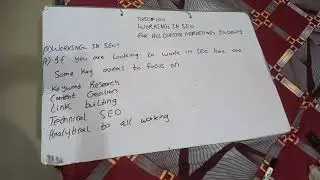 TOPIC#100
WORKING IN SEO
FOR ALL DIGITAL MARKETING STUDENTS
Q) WORKING IN SEO?
A) If you are looking to work in SEO here are
Some key areas to focus on
Keyword Research
Content Creation
Link building
Technical SEO
Analytical to all working